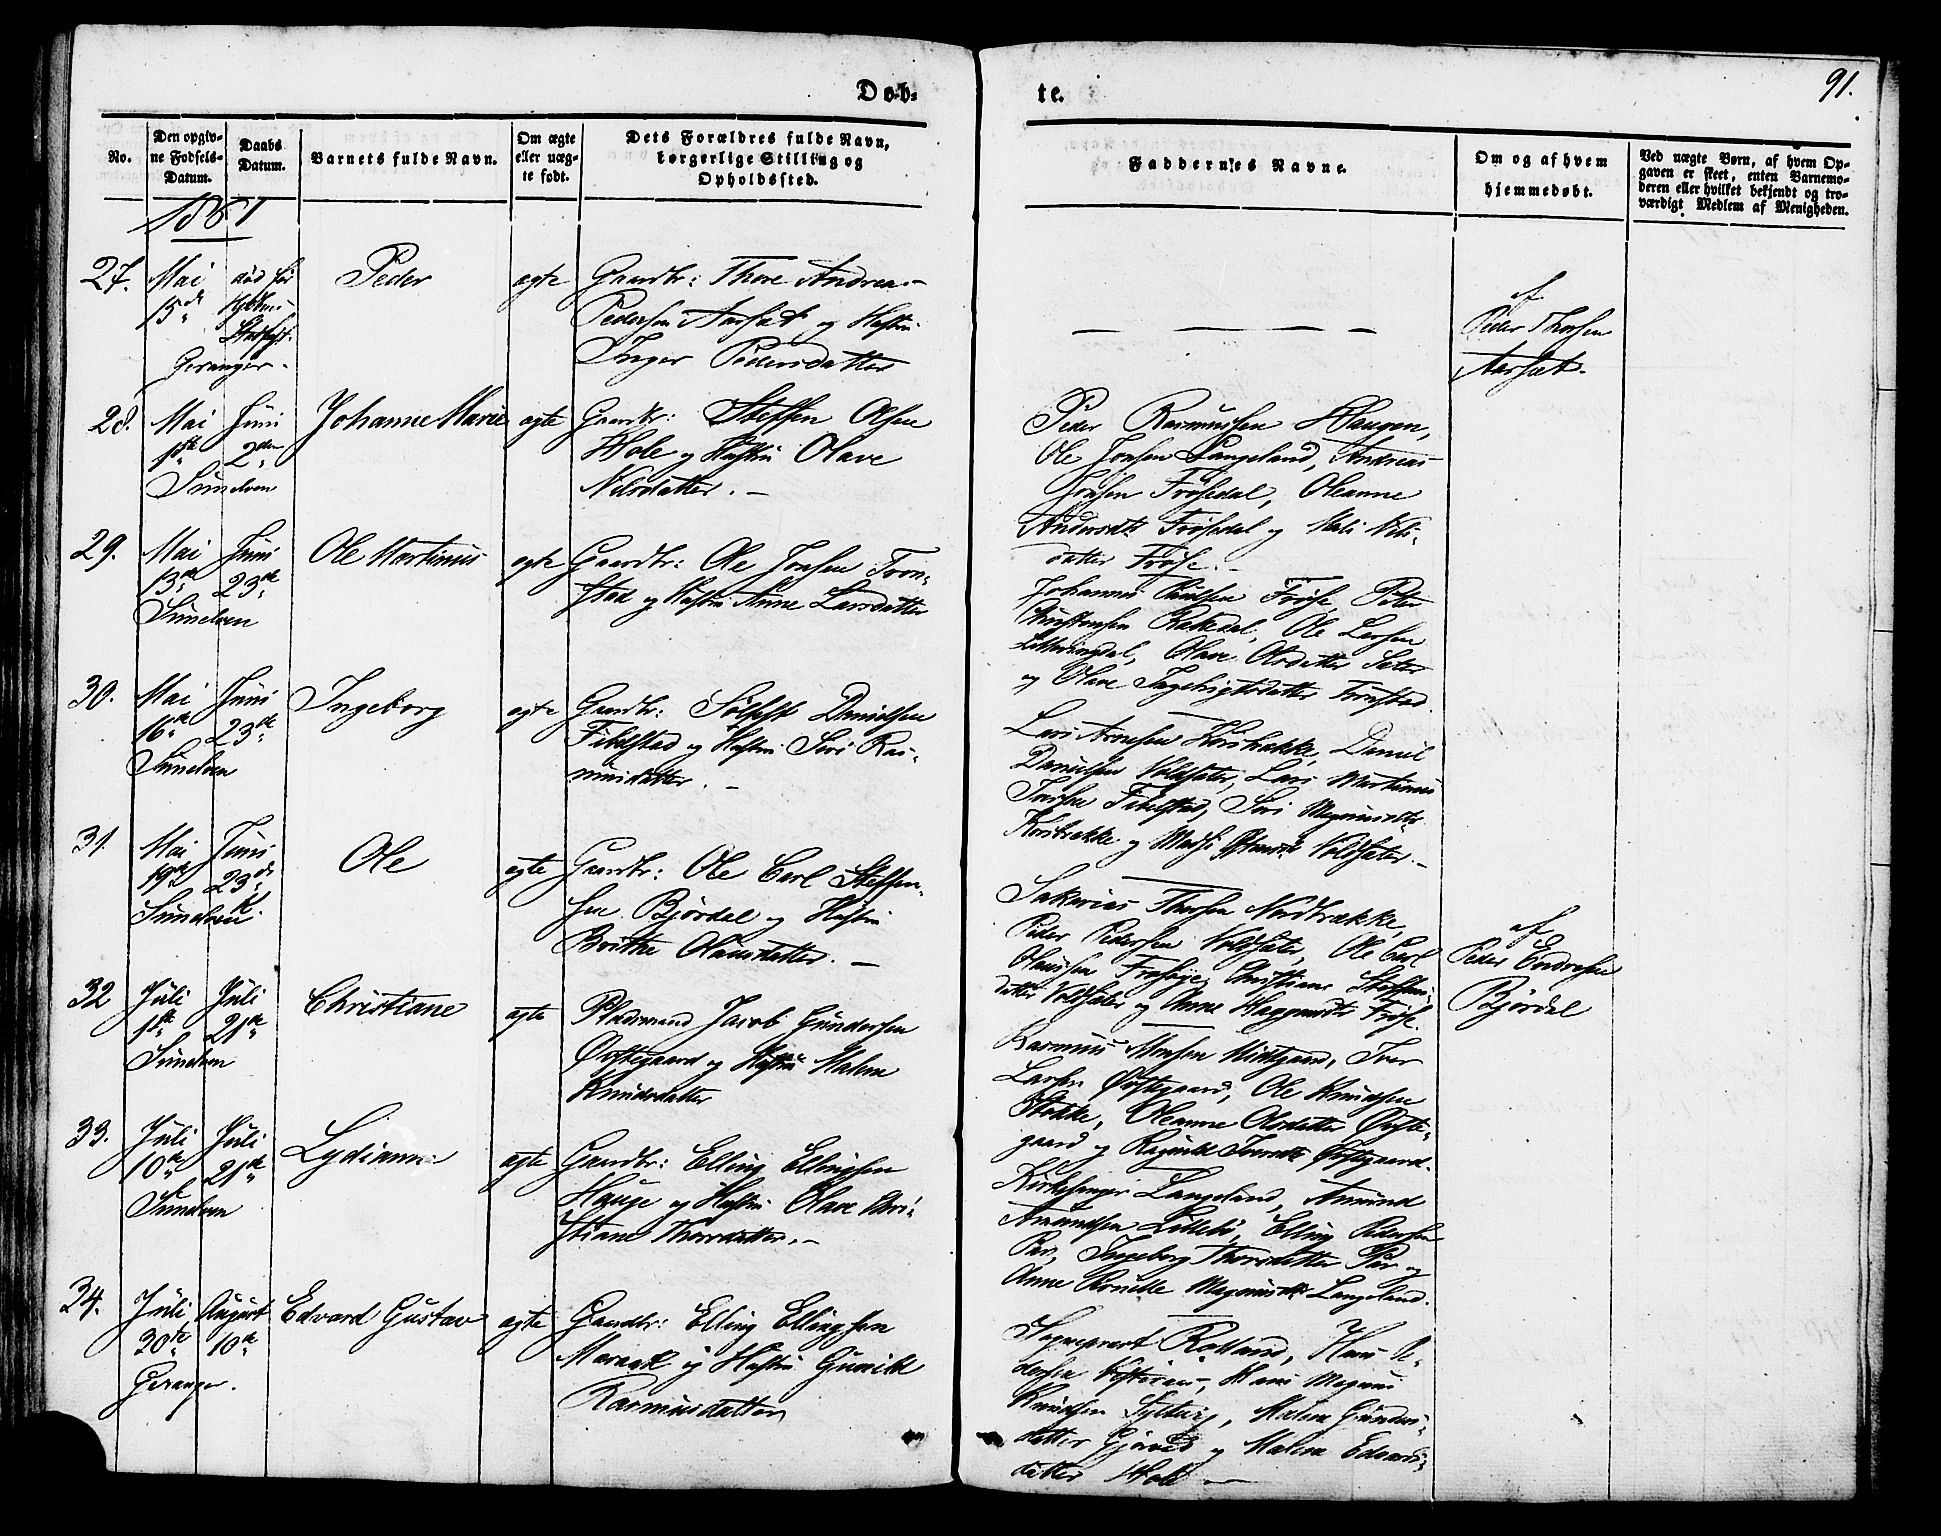 Døb-
te.
91.
No.
Den opgiv-
ne Fødsels-
Datum.
Daabs
Datum.
Barnets fulde Navn.
Om ægte
eller uæg-
te født.
Dets Forældres fulde Navn,
borgerlige Stilling og
Opholdssted.
Faddernes Navne.
Om og af hvem
hjemmedøbt.
Ved uægte Børn, af hvem Op-
gaven er skeet, enten Barnemo-
deren eller hvilket bekjendt og tro-
værdigt Medlem af Menigheden.
1861
27.
Mai
15de
Geranger.
død før
Peder
ægte
Gaardbr: Thore Andreas
Pedersen Aarsæt og Hustru
Inger Pedersdatter
af
Peder Thorsen
Aarsæt.
28.
Mai
1ste
Sunelven
Juni
2den
Johanne Marie
ægte
Gaardbr: Steffen Olsen
Hole og Hustru Olave
Nilsdatter.
Peder Rasmussen Haugen,
Ole Jonsen Langeland, Andreas
Jonsen Frøsedal, Oleanne
Andersdtr Frøsedal og Mali Nils-
datter Frøse.
29.
Mai
13de
Sunelven
Juni
23de
Ole Martinus
ægte
Gaardbr: Ole Jonsen Tron-
stad og Hustru Anne Larsdatter
Johannes Paulsen Frøse, Peter
Christensen Rakedal, Ole Larsen
Olave Olsdatter Sæter
og Olave Ingebrigtsdatter Tronstad.
30.
Mai
16de
Sunelven
Juni
23de
Ingeborg
ægte
Gaardbr: Sølfest Danielsen
Fibelstad og Hustru Siri Ras-
musdatter.
Lars Arnesen Korsbrække, Daniel
Danielsen Voldsæter, Lars Martinus
Larsen Fibelstad, Siri Magnusdtr
Korsbrække og Voldsæter.
31.
Mai
19de
Sunelven
Juni
23de
Ole
ægte
Gaardbr: Ole Carl Steffen-
sen Bjørdal og Hustru
Brithe Olausdatter.
Sakarias Thorsen Nordbrække,
Peder Pedersen Voldsæter, Ole Carl
Olaussen Frøsøije, Christiane Steffens-
datter Voldsæter og Anne Frøse.
af
Peder Endresen
Bjørdal
32
Juli
1ste
Sunelven
Juli
21de
Christiane
ægte
Pladsmand Jacob Gundersen
Øvstegaard og Hustru Malene
Knudsdatter
Rasmus Monsen Midtgaard, Iver
Larsen Øvstegaard, Ole Knudsen
Stokke, Oleanne Olsdatter Øvste-
gaard og Ragnild Iversdtr Øvstegaard.
33.
Juli
10de
Sunelven
Juli
21de
Lydianne
ægte
Gaardbr: Elling Ellingsen
Hauge og Hustru Olave Kri-
stiane Thorsdatter.
Kirkesanger Langeland, Amund
Amundsen Lillebø, Elling Pedersen
Rør, Ingeborg Thorsdatter Rør og
Anne Pernille Magnusdtr Langeland.
34.
Juli
30te
Geranger.
August
10de
Edvard Gustav
ægte
Gaardbr: Elling Ellingsen
Maraak og Hustru Gunild
Rasmusdatter
Sognepræst Rolland, Hans Pe-
dersen Hans Magnus
Knudsen Malene Gunders-
datter Gjørvad og Malene Edvards-
datter Hole